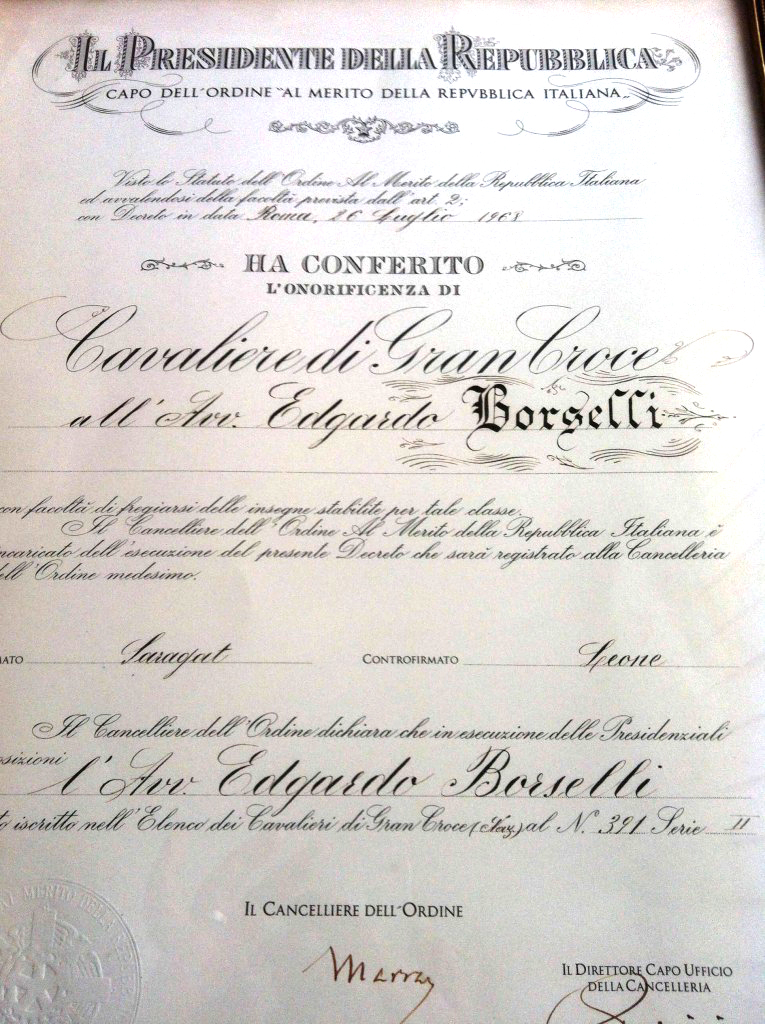 IL PRESIDENTE DELLA REPUBBLICA
CAPO DELL'ORDINE "AL MERITO DELLA REPVBBLICA ITALIANA"
Visto lo Statuto dell'Ordine Al Merito della Repubblica Italiana
ed avvalendosi della facoltà prevista dall'art. 2;
con Decreto in data Roma, 26 Luglio 1968
HA CONFERITO
L'ONORIFICENZA DI
Cavaliere di Gran Croce
all'Avv. Edgardo Borselli
con facoltà di fregiarsi delle insegne stabilite per tale classe.
Il Cancelliere dell'Ordine Al Merito della Repubblica Italiana è
ncaricato dell'esecuzione del presente Decreto che sarà registrato alla Cancelleria
dell'Ordine medesimo.
MATO Saragat CONTROFIRMATO Leone
Il Cancelliere dell'Ordine dichiara che in esecuzione delle Presidenziali
sizioni l'Avv. Edgardo Borselli
to iscritto nell'Elenco dei Cavalieri di Gran Croce (Naz.) al N. 391 Serie II
AL MERITO DELLA REP
IL CANCELLIERE DELL'ORDINE
IL DIRETTORE CAPO UFFICIO
DELLA CANCELLERIA